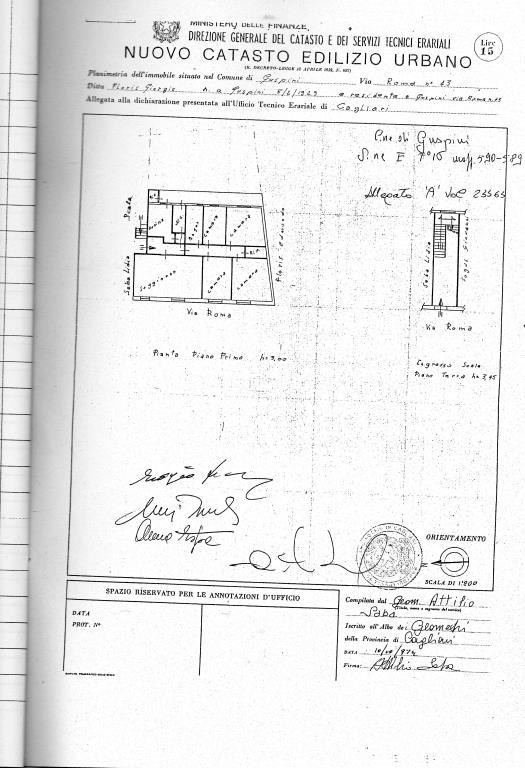 MINISTERO DELLE FINANZE
DIREZIONE GENERALE DEL CATASTO E DEI SERVIZI TECNICI ERARIALI
NUOVO CATASTO EDILIZIO URBANO
Lire
15
(R. DECRETO-LEGGE 13 APRILE 1939, N. 652)
Planimetria dell'immobile situato nel Comune di Guspini Via Roma n° 43
Ditta Floris Giorgio n. a Guspini 5/2/1929 e residente a Guspini via Roma n.
Allegata alla dichiarazione presentata all'Ufficio Tecnico Erariale di Cagliari
C.ne di Guspini
S. ne E F° 10 mapp. 590-589
Allegato 'A' Vol 23565
Scala
Cucina
W.C.
Bagno
Camera
Camera
Floris Edmondo
Saba Lidia
Soggiorno
Camera
Camera
Via Roma
Saba Lidia
Giovanni
Via Roma
Pianta Piano Primo h= 3,00
Ingresso Scala
Piano Terra h= 3,45
ORIENTAMENTO
SCALA DI 1:200
SPAZIO RISERVATO PER LE ANNOTAZIONI D'UFFICIO
DATA
PROT. N°
Compilata dal Geom. Attilio
Saba
(Titolo, nome e cognome del tecnico)
Iscritto all'Albo dei Geometri
della Provincia di Cagliari
DATA
Firma: Attilio Saba